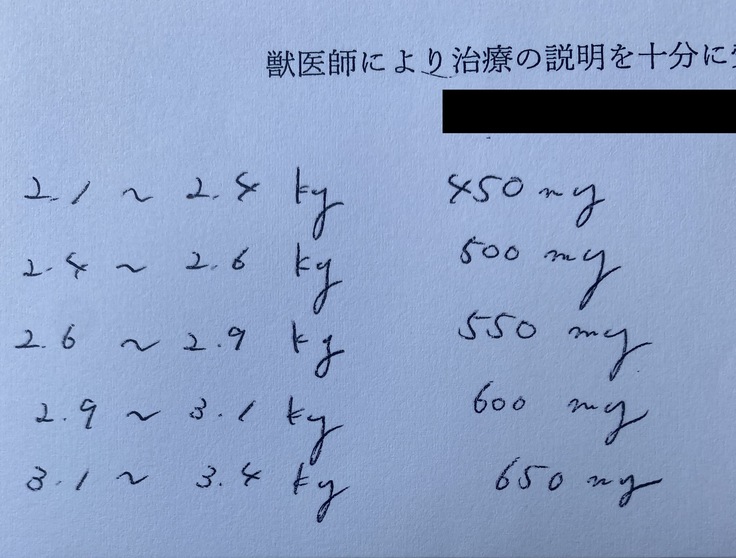 獣医師により治療の説明を十分に
2.1 ~ 2.4 kg 450 mg
2.4 ~ 2.6 kg 500 mg
2.6 ~ 2.9 kg 550 mg
2.9 ~ 3.1 kg 600 mg
3.1 ~ 3.4 kg 650 mg